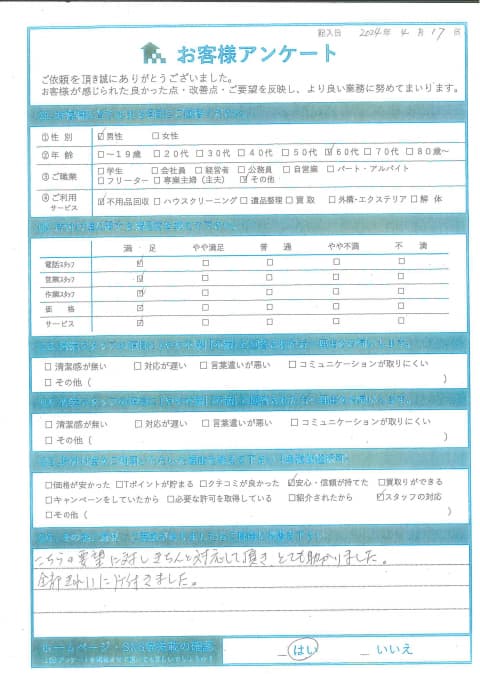 記入日 2024年 4月 17日
お客様アンケート
ご依頼を頂き誠にありがとうございました。
お客様が感じられた良かった点・改善点・ご要望を反映し、より良い業務に努めてまいります。
①性 別 ☑男性 □女性
②年 齢 □～19歳 □20代 □30代 □40代 □50代 ☑60代 □70代 □80歳～
③ご職業 □学生 □会社員 □経営者 □公務員 □自営業 □パート・アルバイト
□フリーター □専業主婦(主夫) ☑その他
④ご利用サービス ☑不用品回収 □ハウスクリーニング □遺品整理 □買取 □外構・エクステリア □解体
満足 やや満足 普通 やや不満 不満
電話スタッフ ☑ □ □ □ □
営業スタッフ ☑ □ □ □ □
作業スタッフ ☑ □ □ □ □
価格 ☑ □ □ □ □
サービス ☑ □ □ □ □
□清潔感が無い □対応が遅い □言葉遣いが悪い □コミュニケーションが取りにくい
□その他( )
□清潔感が無い □対応が遅い □言葉遣いが悪い □コミュニケーションが取りにくい
□その他( )
□価格が安かった □Tポイントが貯まる □クチコミが良かった ☑安心・信頼が持てた □買取りができる
□キャンペーンをしていたから □必要な許可を取得している □紹介されたから ☑スタッフの対応
□その他( )
こちらの要望に対しきちんと対応して頂き、とても助かりました。
全部きれいに片付きました。
ホームページ・SNS掲載の確認
＿はい ＿いいえ